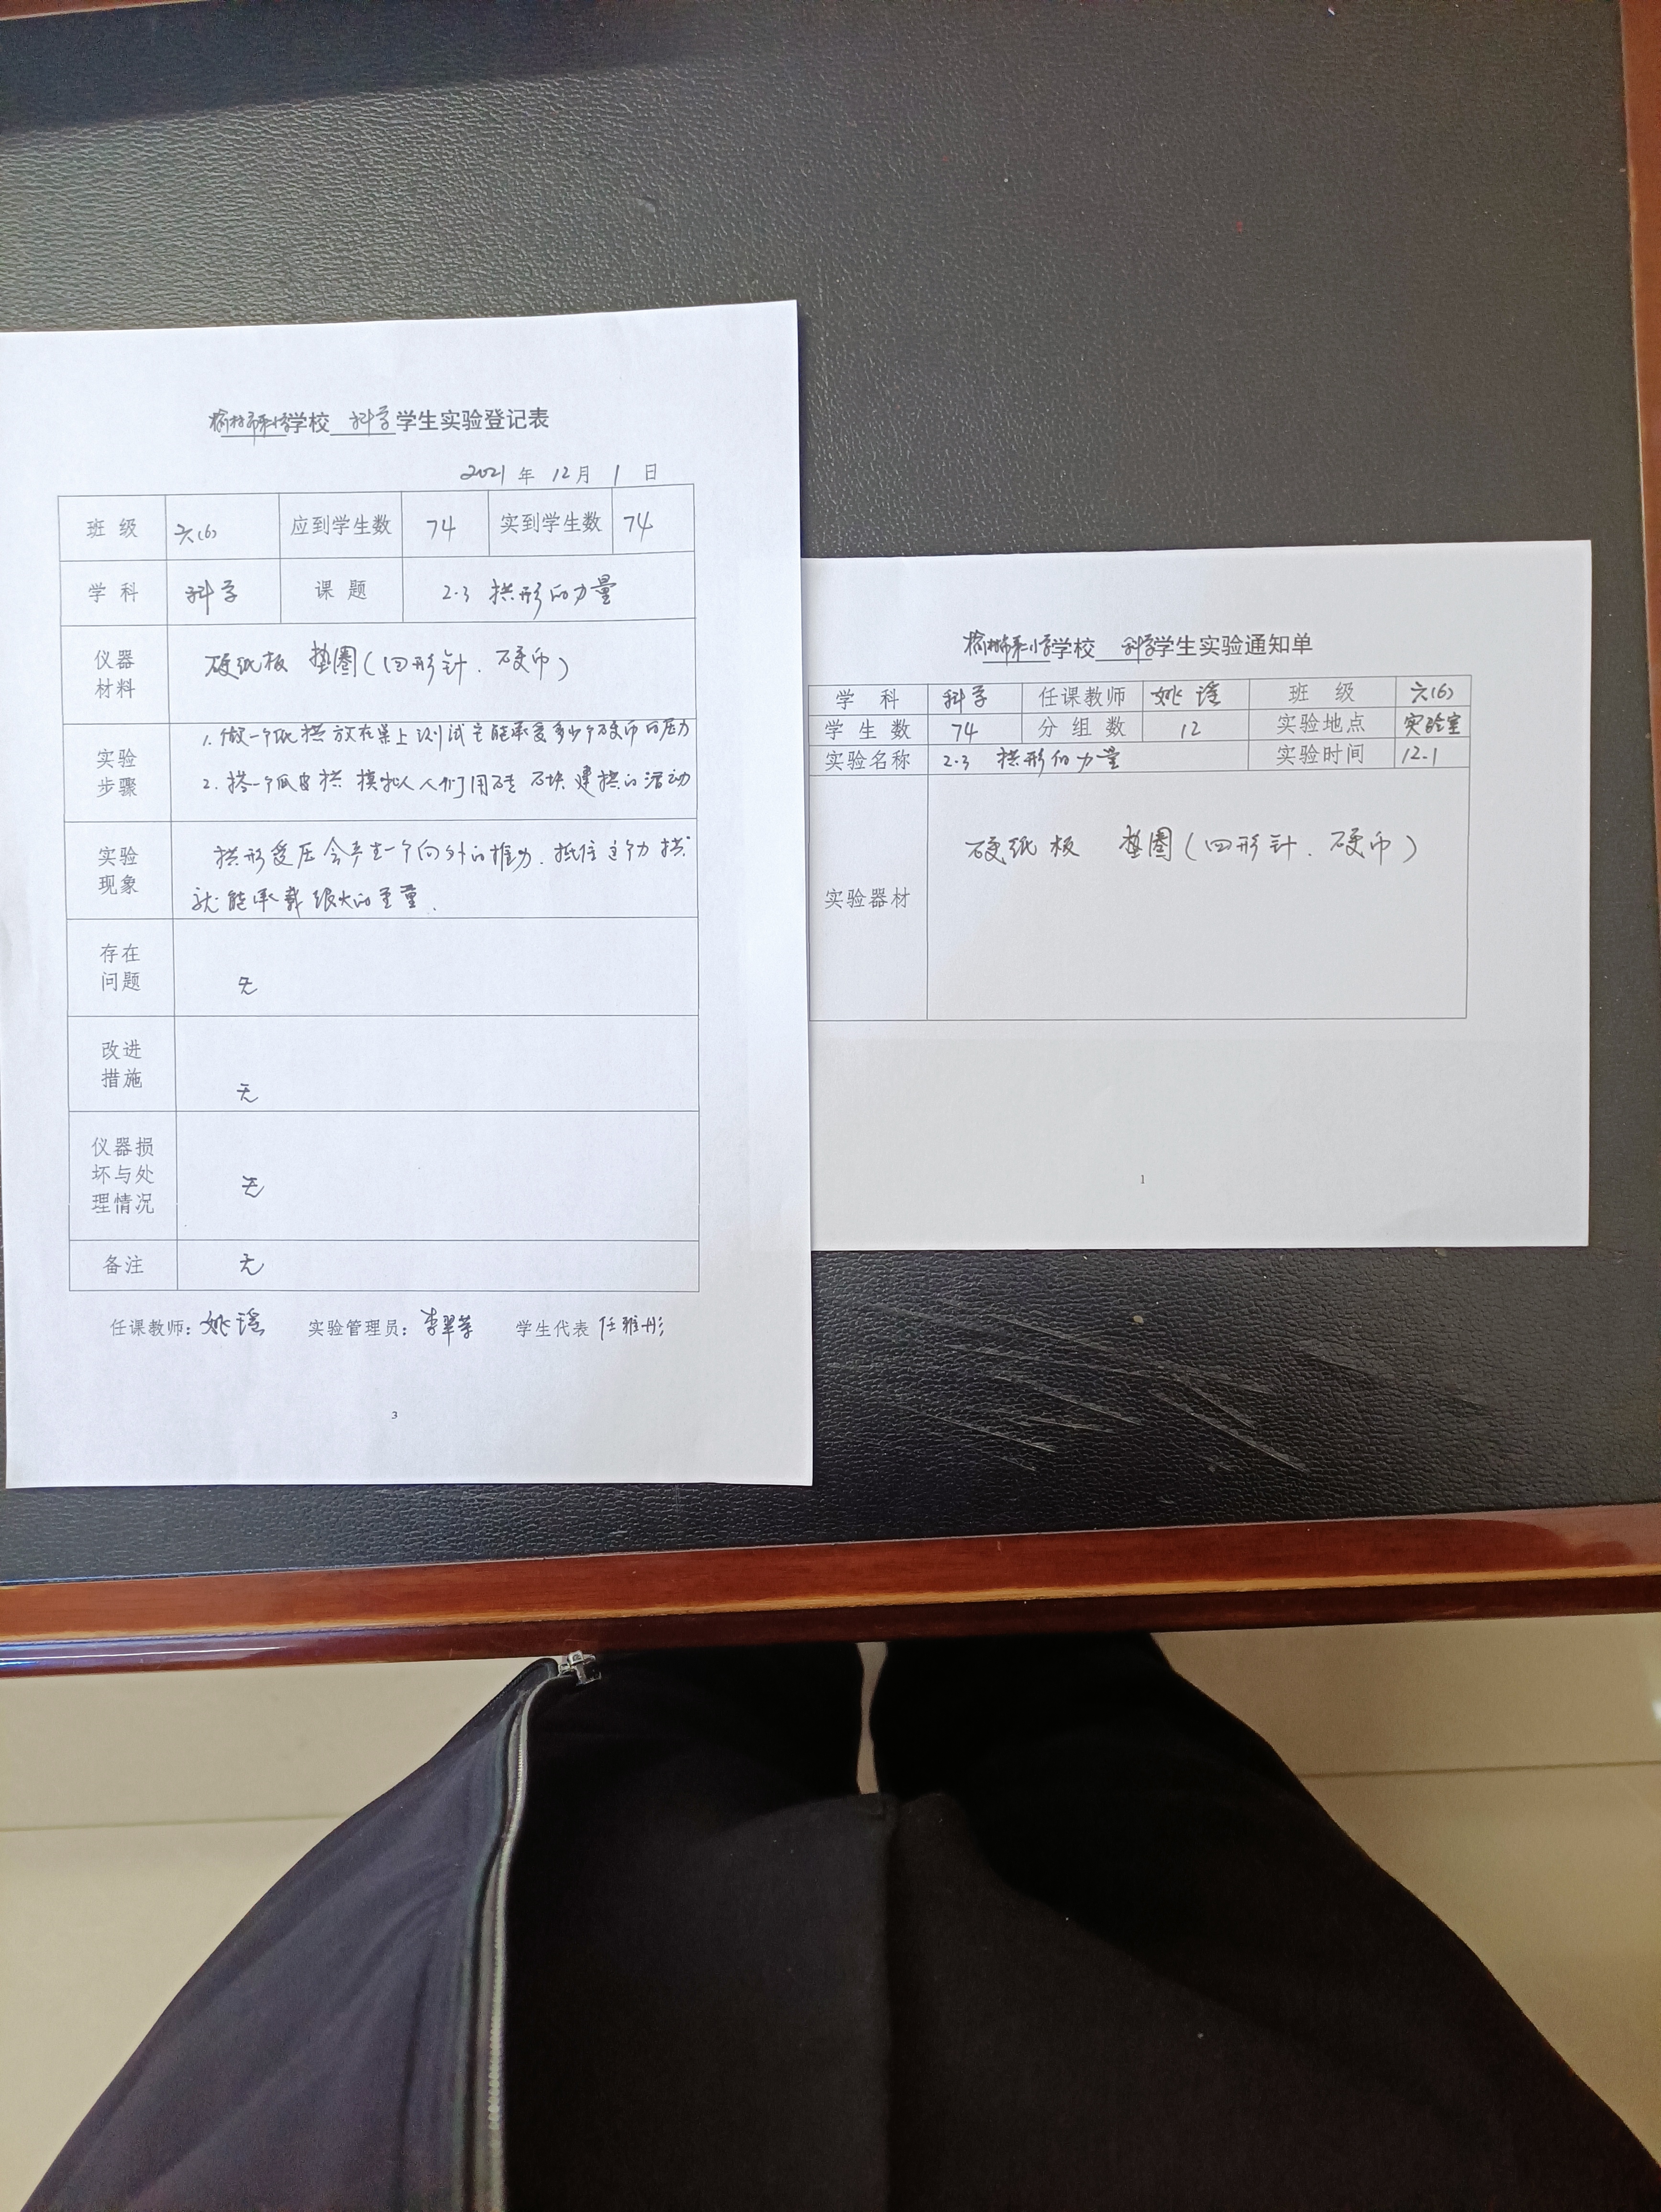 学校 科学 学生实验登记表
2021 年 12 月 1 日
班级 六(6) 应到学生数 74 实到学生数 74
学科 科学 课题 2.3 拱形的力量
仪器材料 硬纸板 垫圈(回形针.硬币)
实验步骤 1.做一个纸拱放在桌上测试它能承受多少个硬币的压力
2.搭一个瓜皮拱 模拟人们用砖石块建拱的活动
实验现象 拱形受压会产生一个向外的推力.抵住这个力拱
就能承载很大的重量.
存在问题 无
改进措施 无
仪器损坏与处理情况 无
备注 无
任课教师：姚瑶 实验管理员：李翠 学生代表 任雅彤
3
学校 科学 学生实验通知单
学科 科学 任课教师 姚瑶 班级 六(6)
学生数 74 分组数 12 实验地点 实验室
实验名称 2.3 拱形的力量 实验时间 12.1
实验器材 硬纸板 垫圈(回形针.硬币)
1